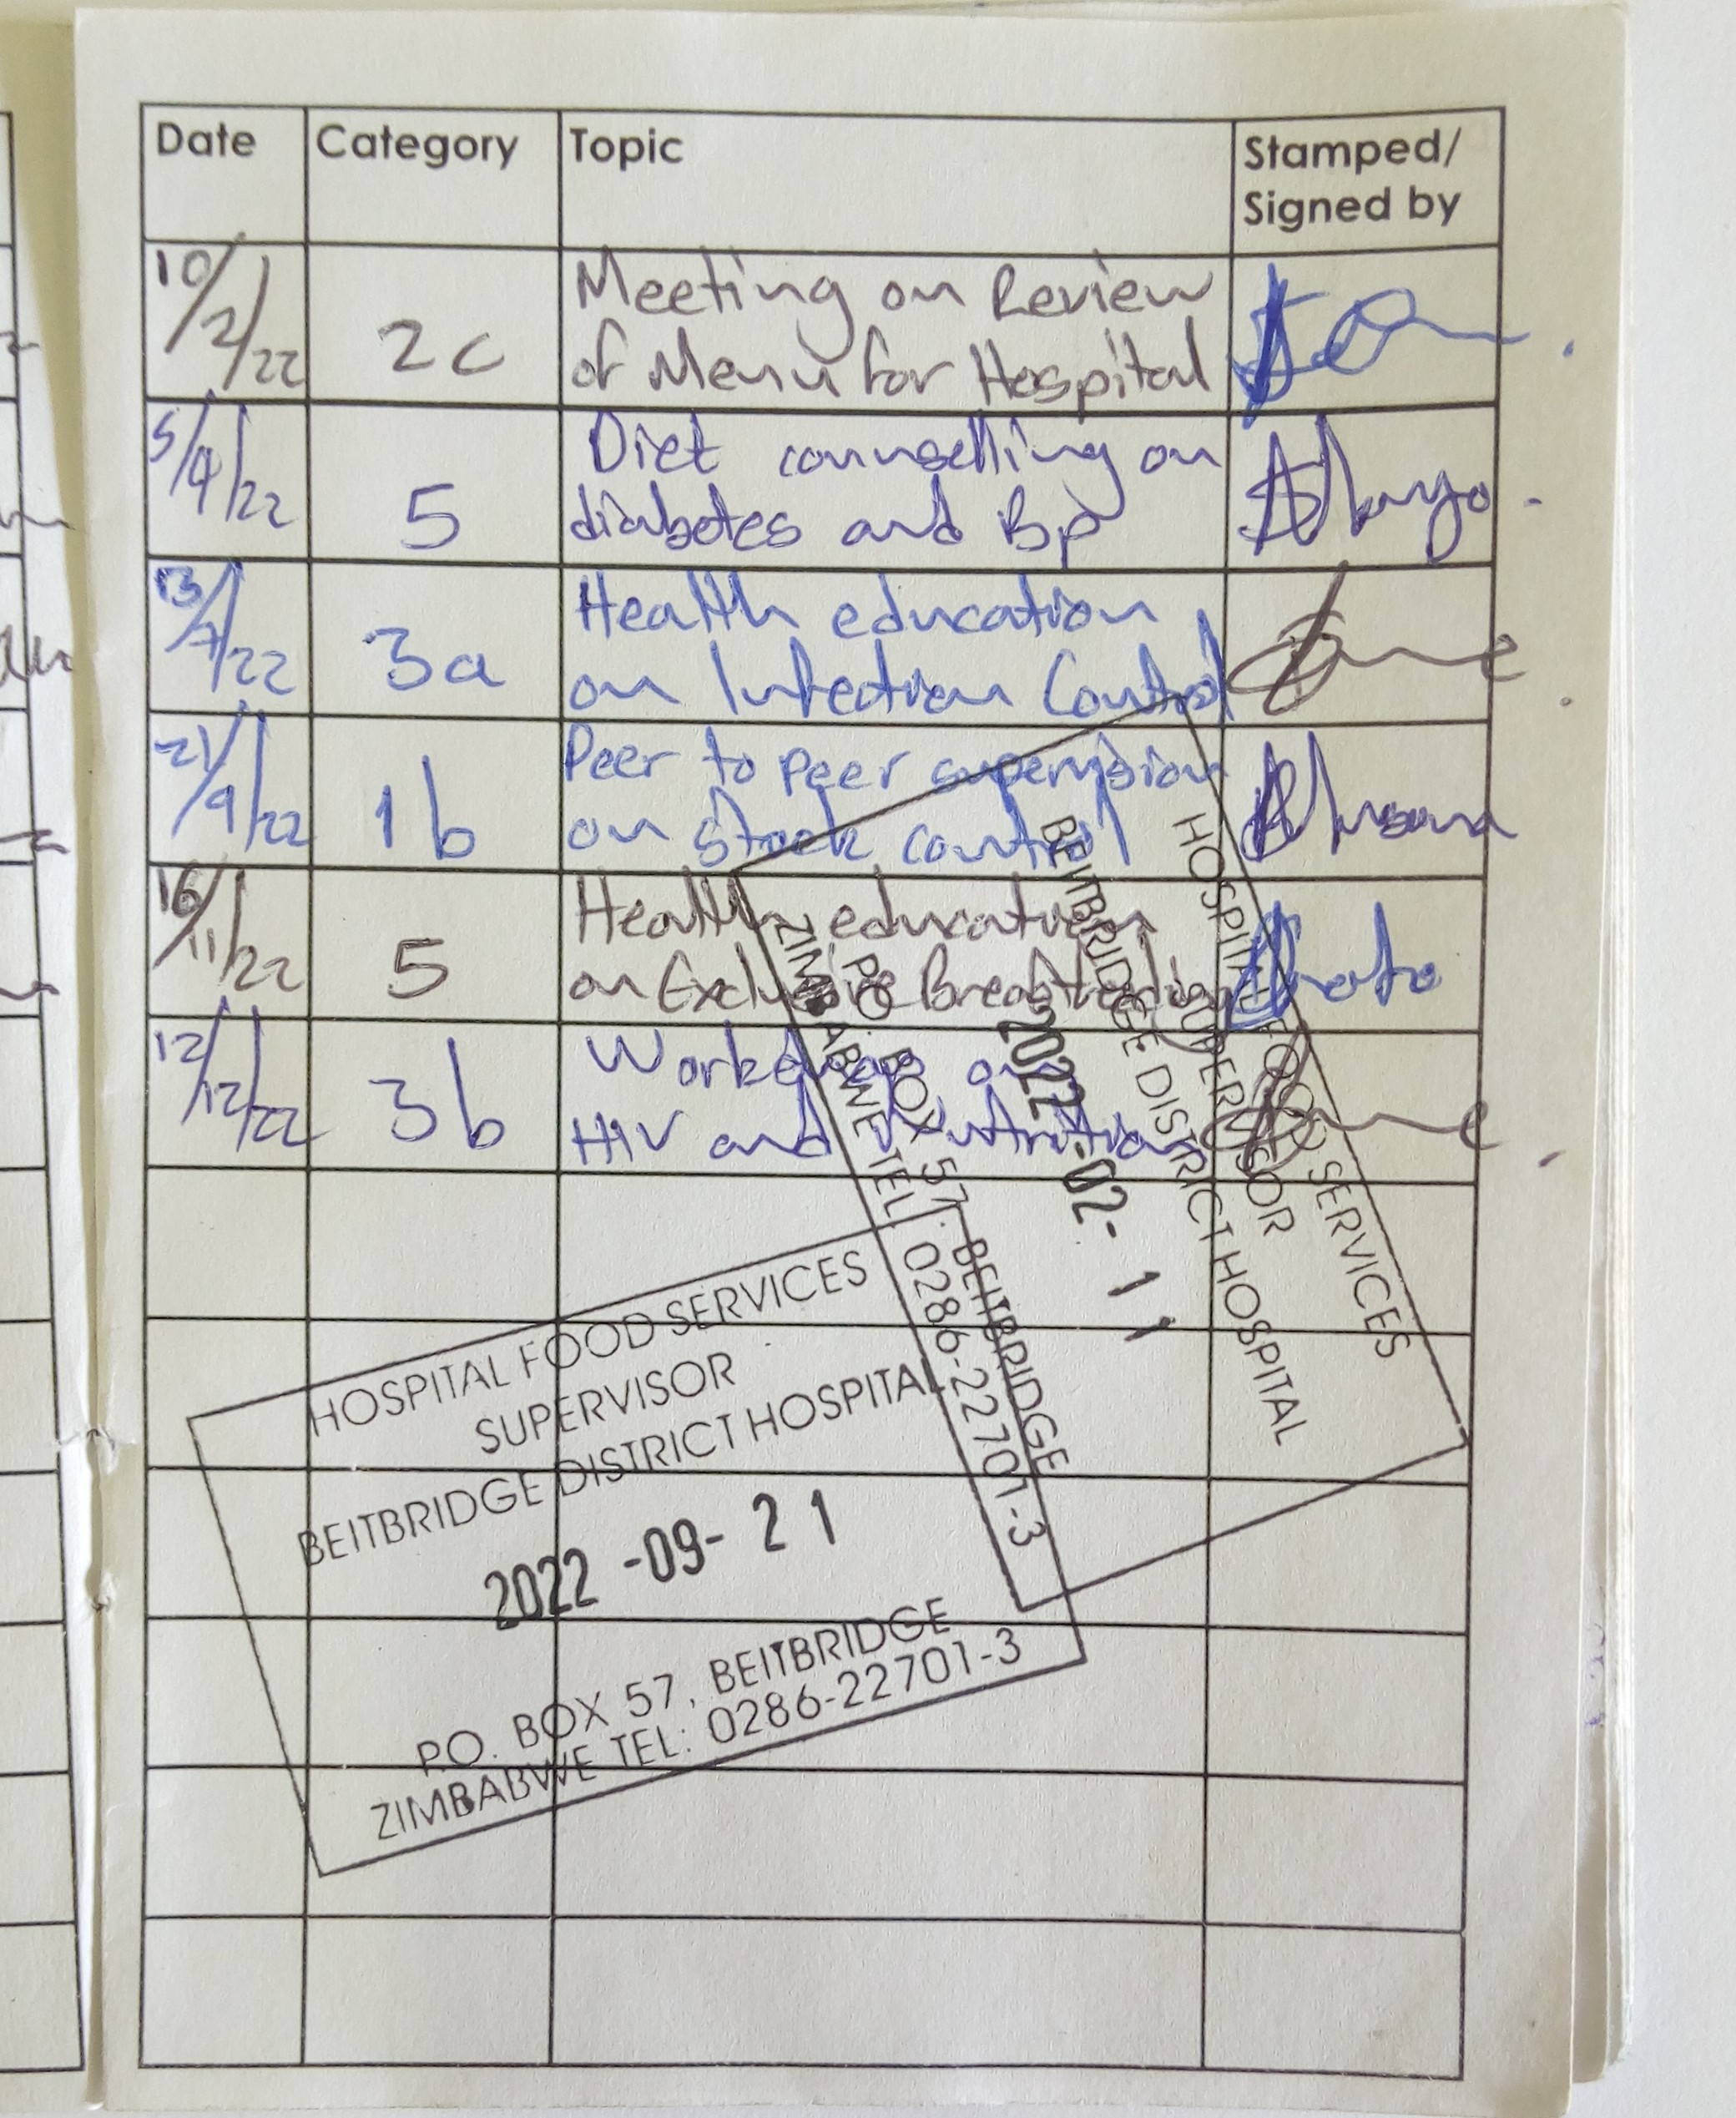 Date Category Topic Stamped/
Signed by
10/2/22 2c Meeting on Review
of Menu for Hospital
5/4/22 5 Diet counselling on
diabetes and Bp
13/7/22 3a Health education
on Infection Control
21/9/22 1b Peer to peer supervision
on stock control
16/11/22 5 Health education
on Exclusive Breastfeeding
12/12/22 3b Workshop on
HIV and Nutrition
HOSPITAL FOOD SERVICES
SUPERVISOR
BEITBRIDGE DISTRICT HOSPITAL
2022-02-11
P.O. BOX 57, BEITBRIDGE
ZIMBABWE TEL: 0286-22701-3
HOSPITAL FOOD SERVICES
SUPERVISOR
BEITBRIDGE DISTRICT HOSPITAL
2022-09-21
P.O. BOX 57, BEITBRIDGE
ZIMBABWE TEL: 0286-22701-3